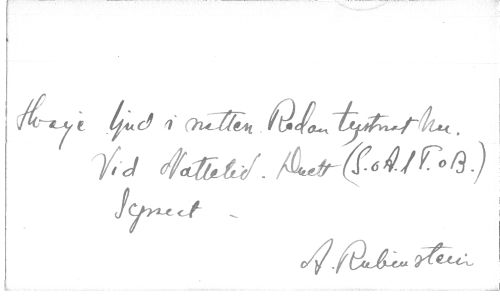 Hvarje ljud i natten Redan tystnat har.
Vid Nattetid. Duett (S.o.A. / T.o.B.)
A. Rubinstein